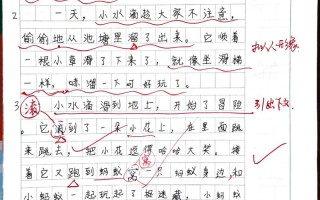 2 一天，小水滴趁大家不注意，
偷偷地从池塘里溜了出来。它顺着
一根小草滑了下来，就像坐滑梯
一样，咻溜一下可好玩了。
3 滚 小水滴滑到地上，开始了冒险
引出下文
。它滚到了一朵小花上，在里面跳
来跳去，把小花逗得哈哈大笑。接
窝
着它又跑到蚂蚁窝 蚂蚁身边，和
小蚂蚁一起玩起了捉迷藏，小蚂蚁